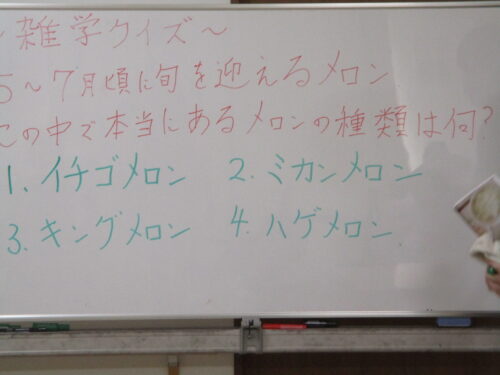 雑学クイズ～
5～7月頃に旬を迎えるメロン
この中で本当にあるメロンの種類は何?
1. イチゴメロン 2. ミカンメロン
3. キングメロン 4. ハゲメロン